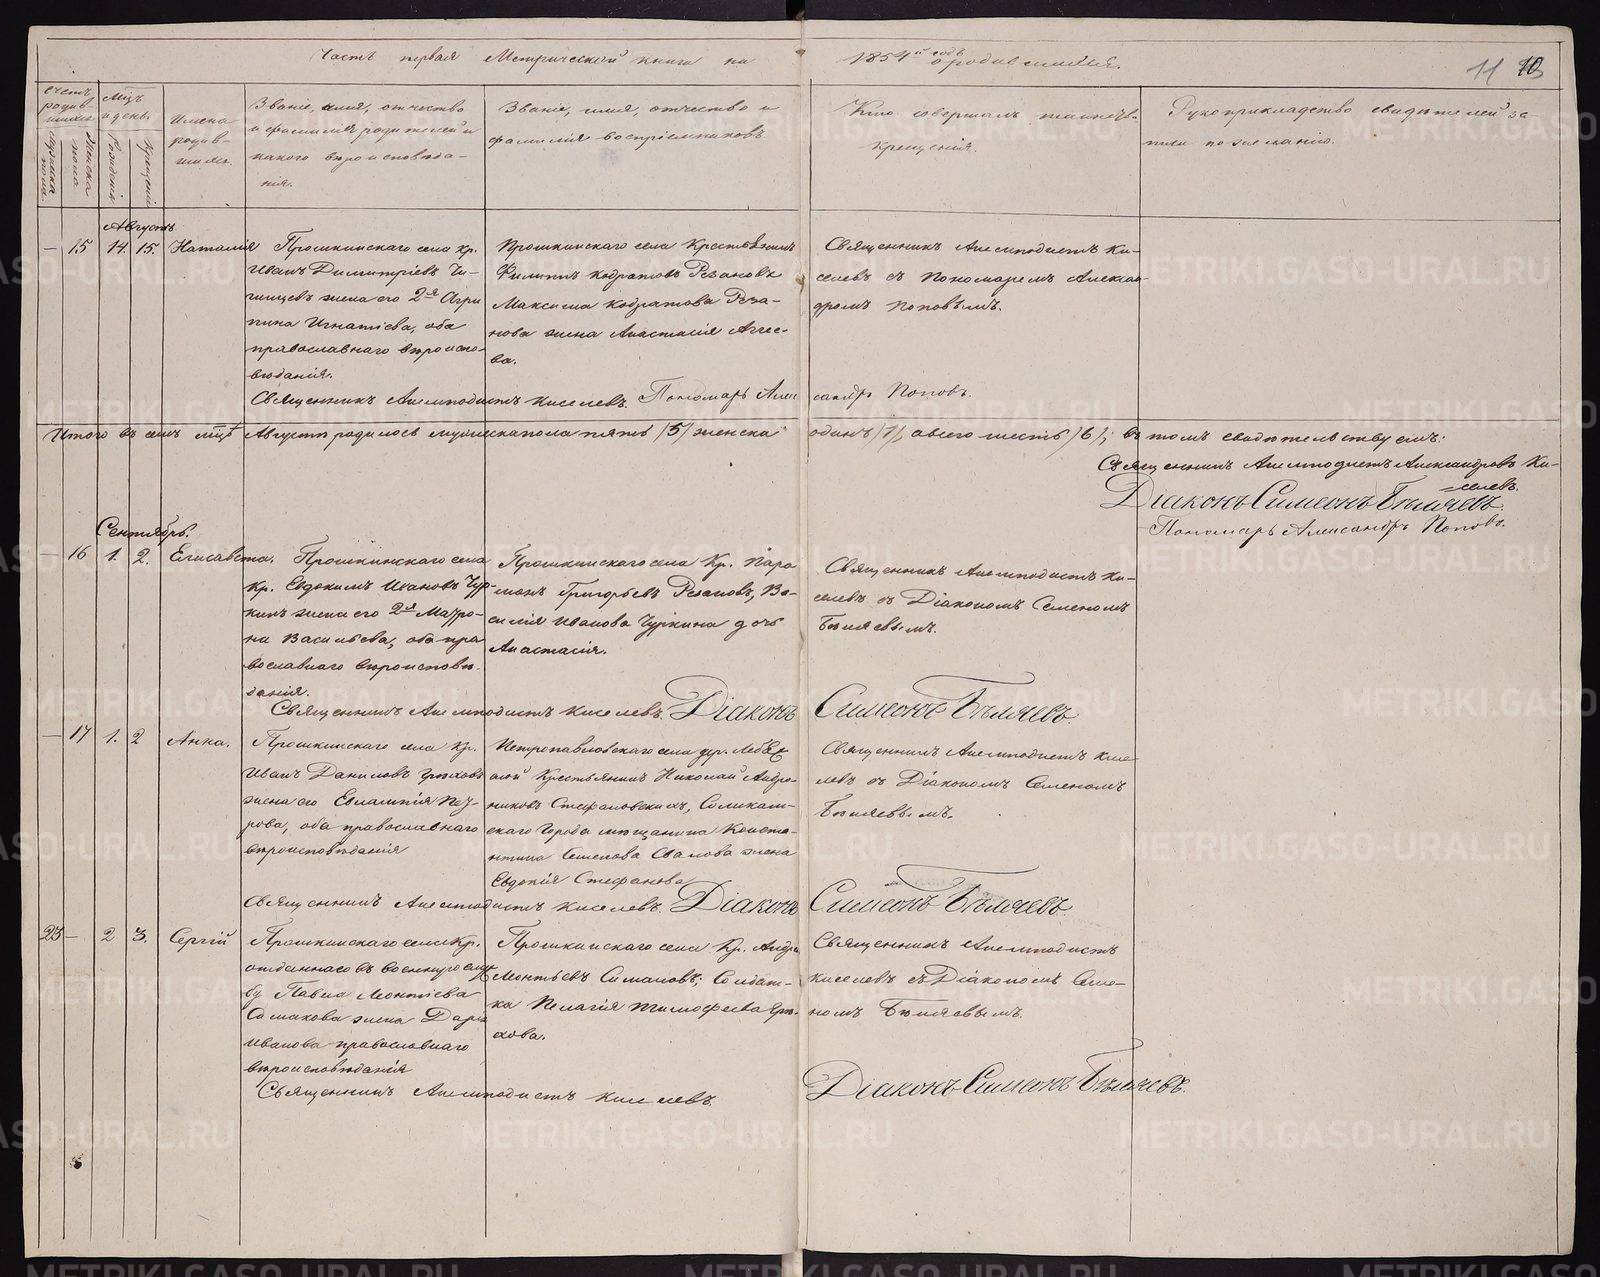 Часть первая Метрической книги на 1854й годъ о родившихся.
11 10
Счетъ родив-
шихся.
Мужеска пола.
Женска пола.
Мѣцъ
и день.
Рожденія
Крещенія
Имена
родив-
шихся.
Званіе, имя, отчество
и фамилія родителей и
какого вѣроисповѣда-
нія.
Званіе, имя, отчество и
фамилія воспріемниковъ
Кто совершалъ таинств.
крещенія.
Рукоприкладство свидѣтелей за-
писи по желанію.
Августъ
— 15 14. 15. Наталія
Прошкинскаго села кр.
Иванъ Димитріевъ
жена его 2я Агри
пина Игнатіева, оба
православнаго вѣроиспо-
вѣданія.
Прошкинскаго села Крестьянинъ
Филиппъ Кодратовъ Резановъ
Максима Кодратова Реза-
нова жена Анастасія Аггее-
ва.
Священникъ Анемподистъ Ки-
селевъ съ Пономаремъ Алексан-
дромъ Поповымъ.
Священникъ Анемподистъ Киселевъ. Пономарь Александръ Поповъ.
Итого въ семъ мѣцѣ Августѣ родилось мужеска пола пять /5/ женска одинъ /1/, а всего шесть /6/; въ томъ свидѣтельствуемъ:
Священникъ Анемподистъ Александровъ Ки-
селевъ.
Діаконъ Симеонъ Бѣляевъ
Пономарь Александръ Поповъ.
Сентябрь.
— 16 1. 2. Елисавета.
Прошкинскаго села
Кр. Евдокимъ Ивановъ Чур-
кинъ жена его 2я Матро-
на Васильева, оба пра
вославнаго вѣроисповѣ-
данія.
Прошкинскаго села Кр. Пара
монъ Григорьевъ Резановъ, Ва-
силія Иванова Чуркина дочь
Анастасія.
Священникъ Анемподистъ Ки-
селевъ съ Діакономъ Семеномъ
Бѣляевымъ.
Священникъ Анемподистъ Киселевъ. Діаконъ Симеонъ Бѣляевъ
— 17 1. 2 Анна.
Прошкинскаго села Кр.
Иванъ Даниловъ
жена его Евлампія Пет-
рова, оба православнаго
вѣроисповѣданія
Петропавловскаго села дер.
Крестьянинъ Николай Андро-
никовъ Стефановскихъ, Соликам-
скаго Города мѣщанина Конста-
нтина Семенова жена
Евдокія Стефанова
Священникъ Анемподистъ Кисе-
левъ съ Діакономъ Семеномъ
Бѣляевымъ.
Священникъ Анемподистъ Киселевъ. Діаконъ Симеонъ Бѣляевъ.
23 — 2 3. Сергій
Прошкинскаго села Кр.
отданнаго въ военную служ
бу Павла Леонтіева
Симакова жена Дарья
Иванова православнаго
вѣроисповѣданія
Прошкинскаго села Кр. Андрей
Леонтьевъ Симаковъ; Солдат-
ка Пелагія Тимофеева Ерма-
кова.
Священникъ Анемподистъ
Киселевъ съ Діакономъ Семе-
номъ Бѣляевымъ.
Священникъ Анемподистъ Киселевъ. Діаконъ Симеонъ Бѣляевъ.
METRIKI.GASO-URAL.RU